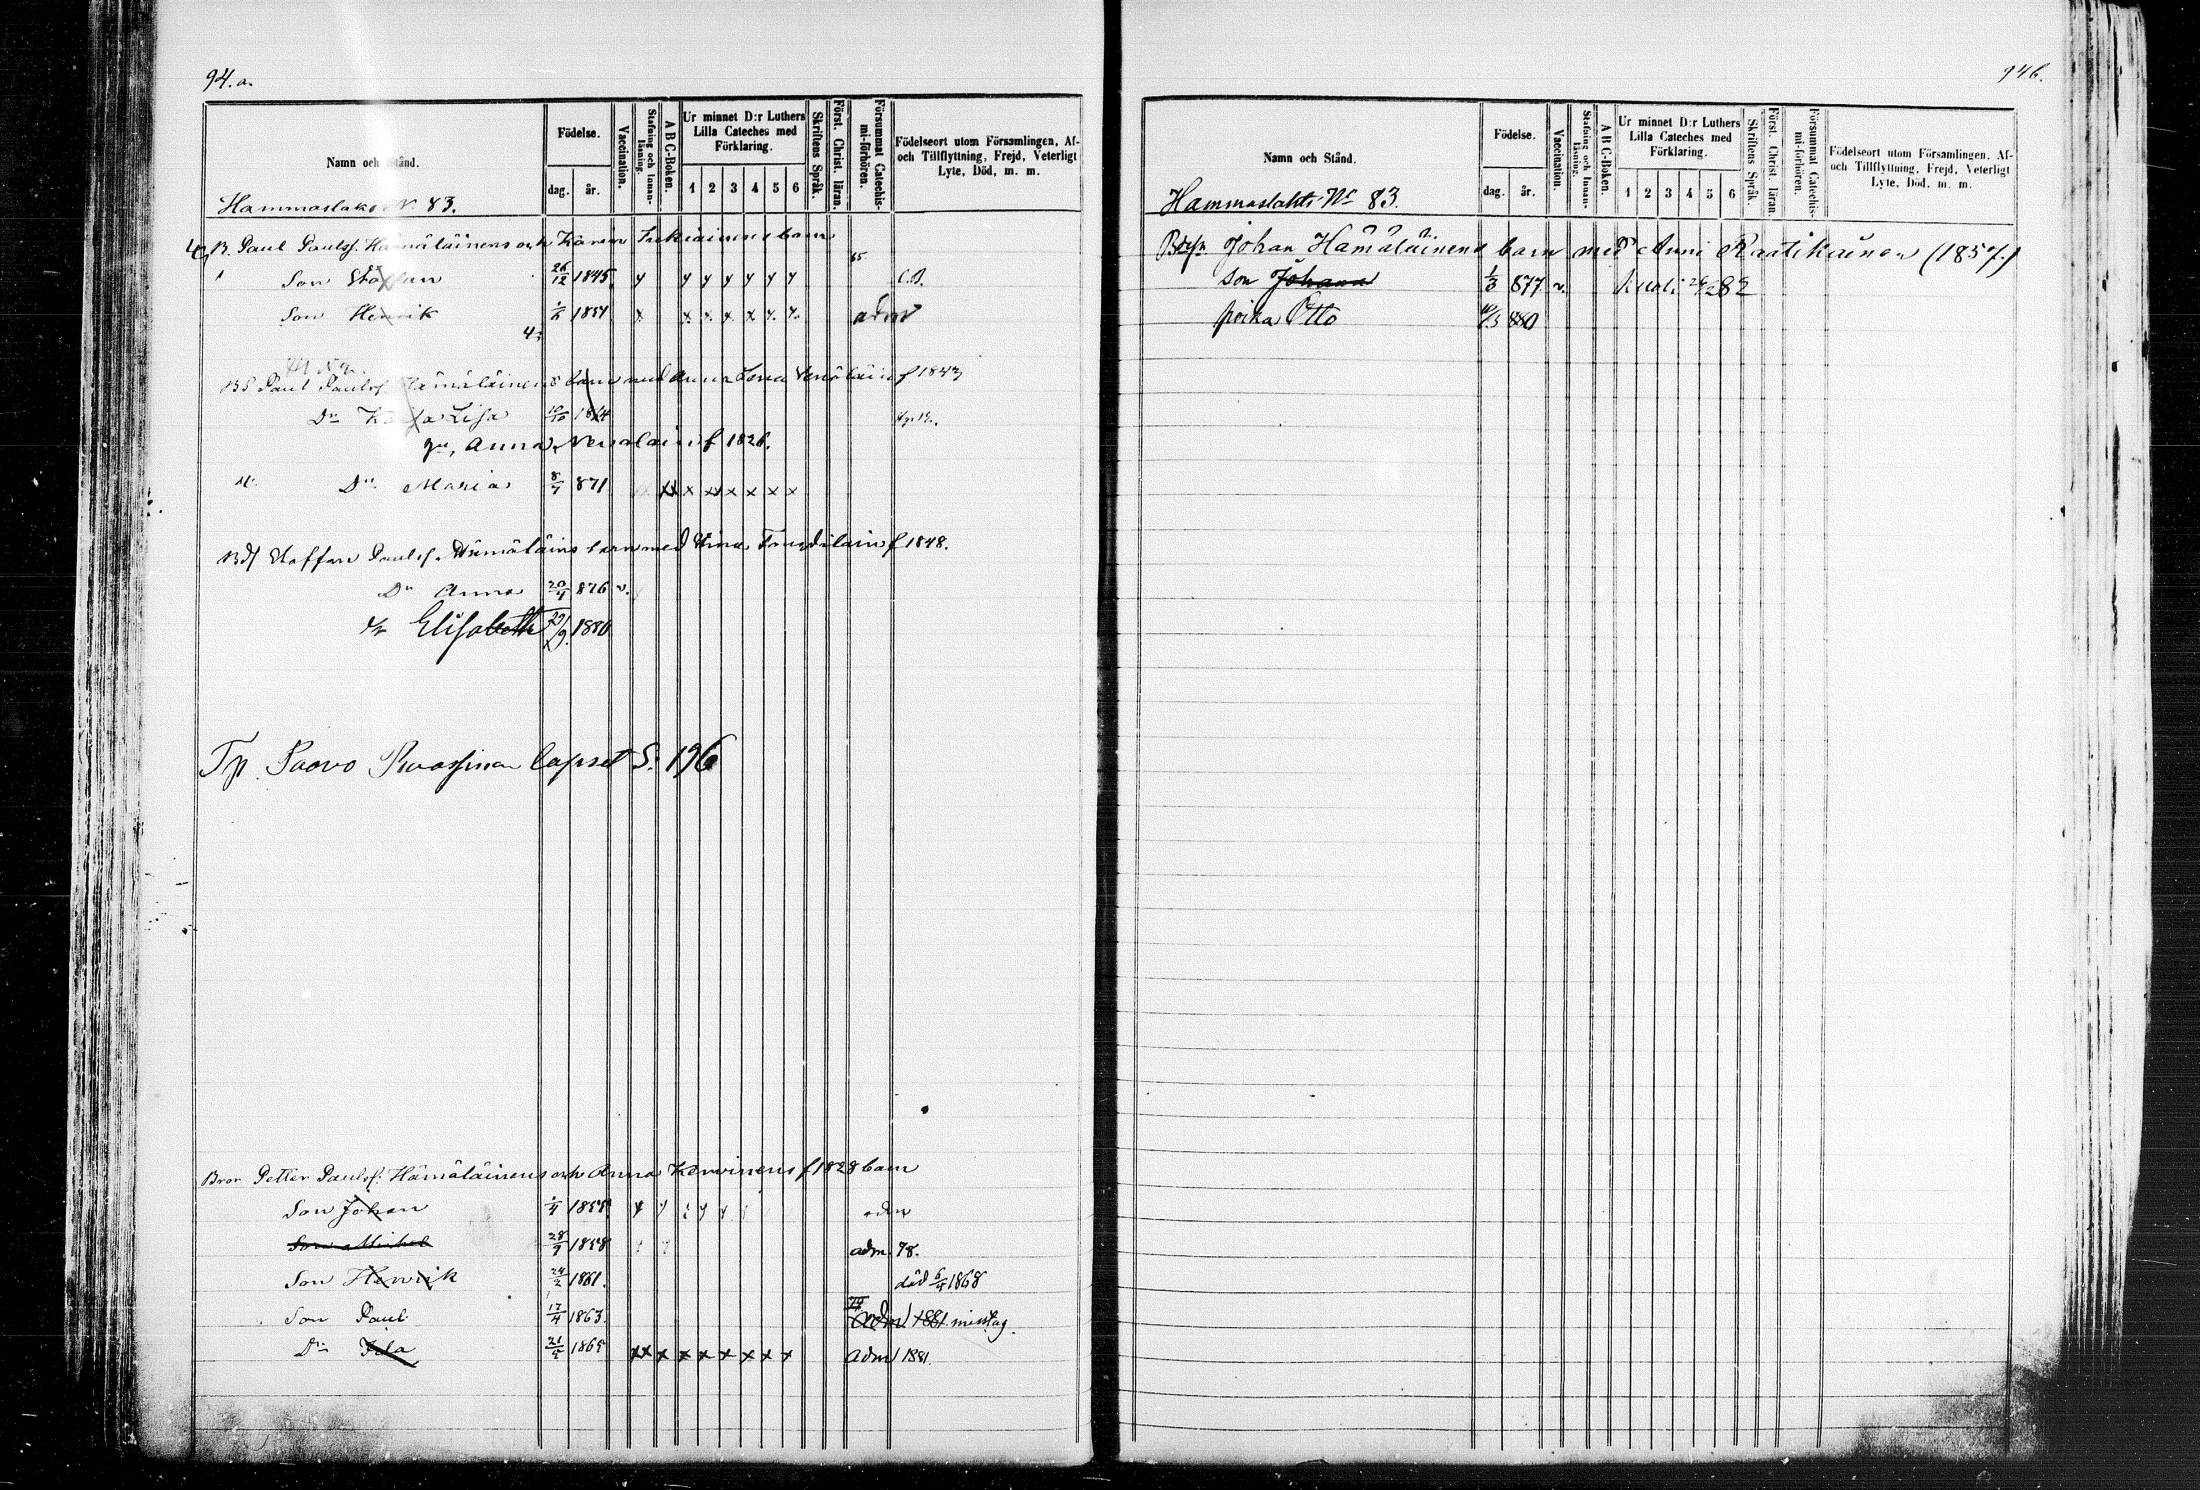 94.a.
Namn och Stånd.
Födelse.
dag.
år.
Vaccination.
Stafning och Innan-läsning.
A B C-Boken.
Ur minnet D:r Luthers
Lilla Cateches med
Förklaring.
1 2 3 4 5 6
Skriftens Språk.
Först. Christ. läran.
Försummat Catechis-mi-förhören.
Födelseort utom Församlingen, Af-
och Tillflyttning, Frejd, Veterligt
Lyte, Död, m. m.
Hammaslaks N. 83.
B. Paul Paulsf. Hämäläinens och Karin barn
Son Staffan 26/12 1845. y y y y y y y
Son Henrik 1851 x x x x x x x adm
BS Paul Paulsf. Hämäläinens barn med Anna Lena f 1843
Dr Lisa 1864
Anna f 1826.
Dr Maria 8/7 871 x x x x x x x
Bdf Staffan Paulsf. Hämäläins barn med Stina f 1848.
Dr Anna 20/4 876 v.
Dr Elisabeth 29/9. 1880
Tp. Paavo lapset S. 196
Bror Petter Paulsf. Hämäläinens och Anna Kervinens f 1828 barn
Son Johan 1/4 1855 y y y y adm
Son Michel 28/9 1858 adm. 78.
Son Henrik 24/2 1861. död 1868
Son Paul 17/4 1863. adm. 1881. misstag.
Dr 21/5 1865 xx x x x x x x x adm 1881.
94b.
Namn och Stånd.
Födelse.
dag.
år.
Vaccination.
Stafning och Innan-läsning.
A B C-Boken.
Ur minnet D:r Luthers
Lilla Cateches med
Förklaring.
1 2 3 4 5 6
Skriftens Språk.
Först. Christ. läran.
Försummat Catechis-mi-förhören.
Födelseort utom Församlingen, Af-
och Tillflyttning, Frejd, Veterligt
Lyte, Död, m. m.
Hammaslahti No 83.
Johan Hämäläinens barn med Anni Raatikainen (1857.)
son Johann 1/3 877 v. kuoli 82
poika Otto 880